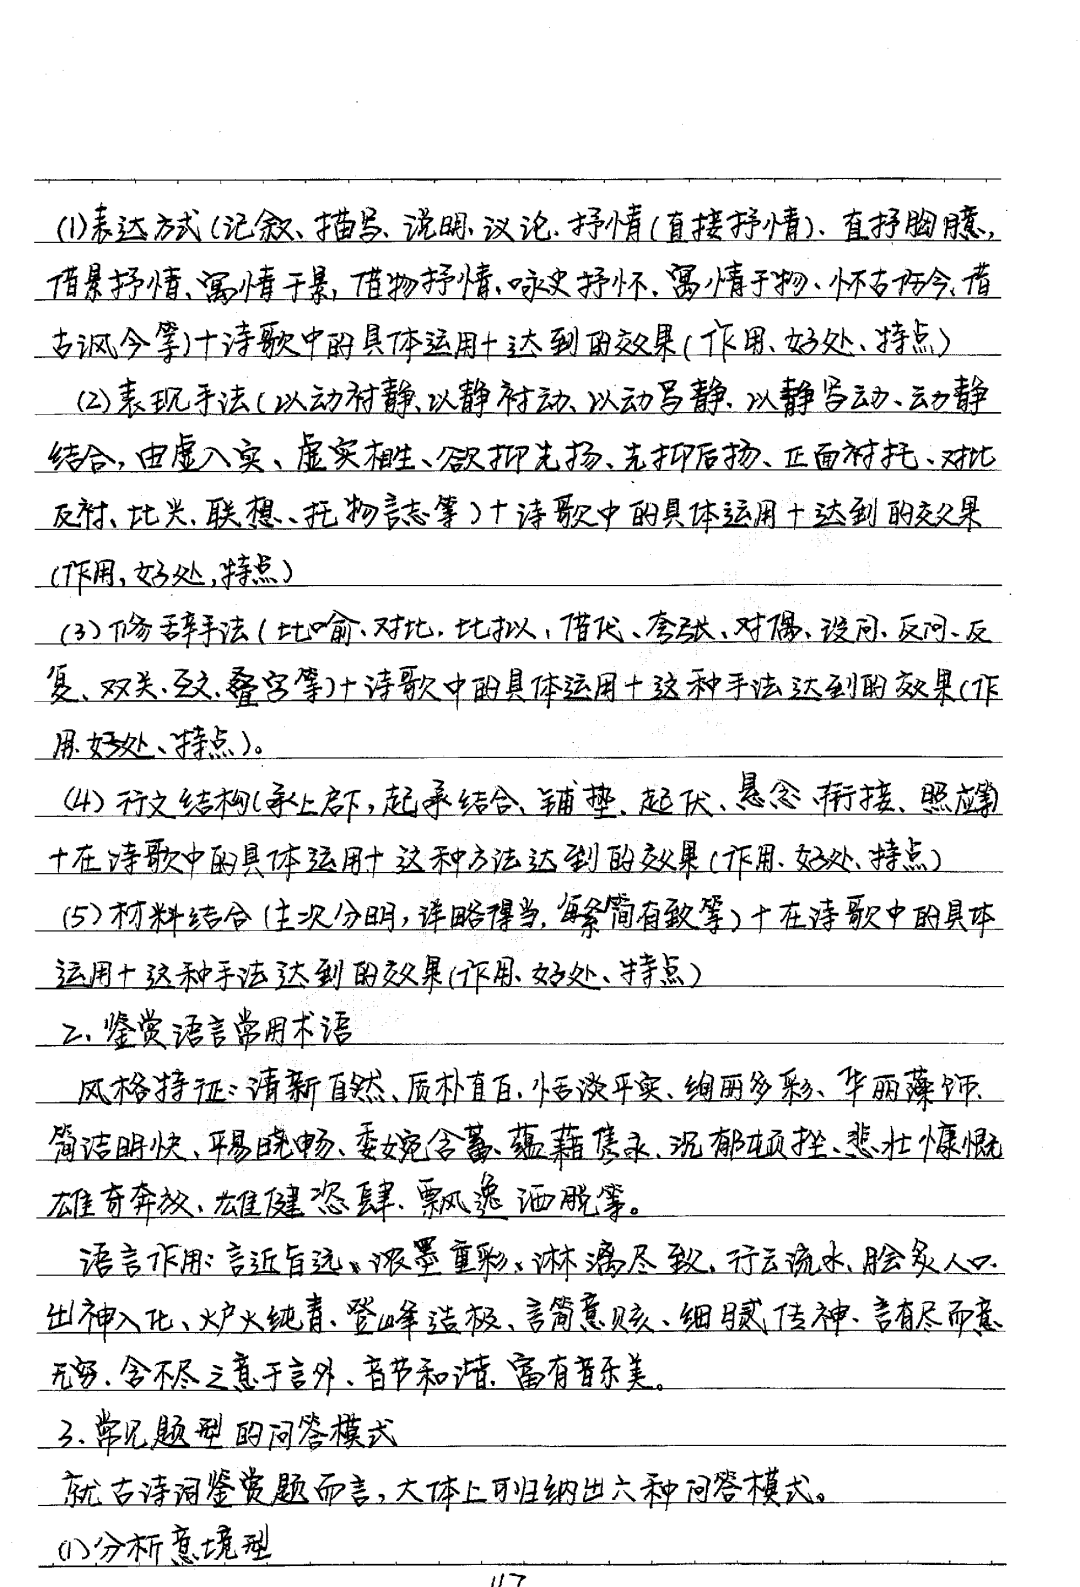 (1)表达方式(记叙、描写、说明、议论、抒情(直接抒情)、直抒胸臆,
借景抒情、寓情于景,借物抒情、咏史抒怀、寓情于物、怀古伤今、借
古讽今等)+诗歌中的具体运用+达到的效果(作用、好处、特点)
(2)表现手法(以动衬静、以静衬动、以动写静、以静写动、动静
结合,由虚入实、虚实相生、欲抑先扬、先抑后扬、正面衬托、对比
反衬、比兴、联想、托物言志等)+诗歌中的具体运用+达到的效果
(作用,好处,特点)
(3)修辞手法(比喻、对比、比拟、借代、夸张、对偶、设问、反问、反
复、双关、互文、叠字等)+诗歌中的具体运用+这种手法达到的效果(作
用、好处、特点)。
(4)行文结构(承上启下,起承结合、铺垫、起伏、悬念、衔接、照应等)
+在诗歌中的具体运用+这种方法达到的效果(作用、好处、特点)
(5)材料结合(主次分明,详略得当,繁简有致等)+在诗歌中的具体
运用+这种手法达到的效果(作用、好处、特点)
2、鉴赏语言常用术语
风格特征:清新自然、质朴直白、恬淡平实、绚丽多彩、华丽藻饰、
简洁明快、平易晓畅、委婉含蓄、蕴藉隽永、沉郁顿挫、悲壮慷慨
雄奇奔放、雄健恣肆、飘逸洒脱等。
语言作用:言近旨远、浓墨重彩、淋漓尽致、行云流水、脍炙人口、
出神入化、炉火纯青、登峰造极、言简意赅、细腻传神、言有尽而意
无穷、含不尽之意于言外、音节和谐、富有音乐美。
3、常见题型的问答模式
就古诗词鉴赏题而言,大体上可归纳出六种问答模式。
(1)分析意境型
117